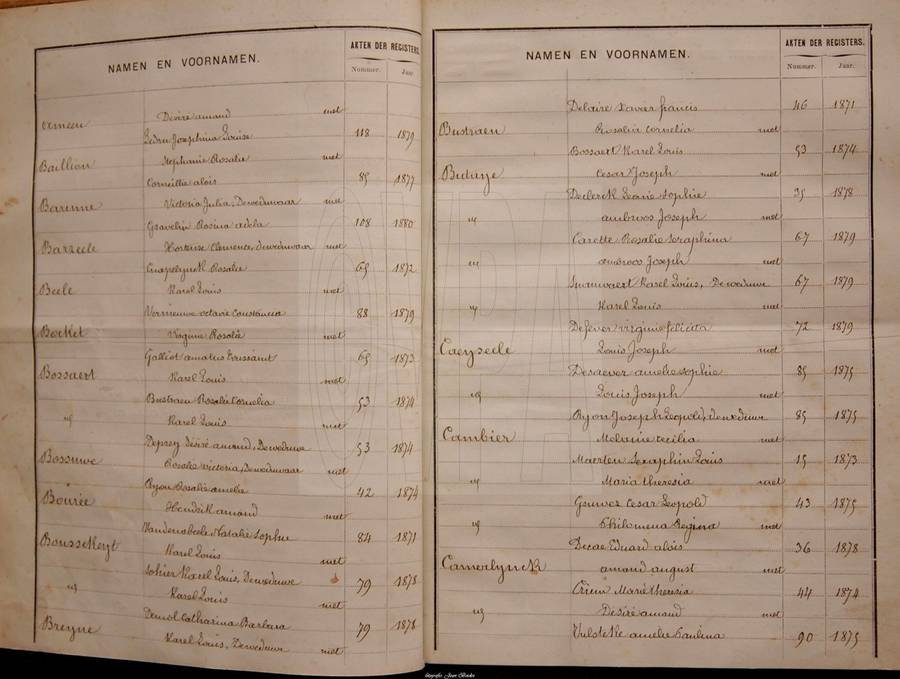 NAMEN EN VOORNAMEN.
AKTEN DER REGISTERS.
Nommer. Jaar.
Desiré amand met
Ledru Josephina Louise 118 1879
Baillion Stephanie Rosalie met
Corneillie alois 85 1877
Barenne Victoria Julia, Deweduwaar met
Gravelin Rosina adela 108 1880
Barzeele Hortense Clemence, deweduwaar met
Rosalie 65 1872
Beele Karel Louis met
Vermeeuwe octavie Constancia 88 1879
Boeket Virginie Rosalie met
Galliot amatus 65 1873
Bossaert Karel Louis met
Bustraen Rosalie Cornelia 53 1874
id Karel Louis met
Deprey désiré amand, Deweduwe 53 1874
Bossuwe Rosalie victoria, Deweduwaar met
Ryon Rosalie amelie 42 1874
Bourée Hendrik amand met
Vandenabeele Natalie Sophie 84 1871
Boussekeyt Karel Louis met
Sohier Karel Louis, Deweduwe 79 1878
id Karel Louis met
Demol Catharina Barbara 79 1878
Breyne Karel Louis, Deweduwe met
NAMEN EN VOORNAMEN.
AKTEN DER REGISTERS.
Nommer. Jaar.
Delaire Xavier francis 46 1871
Bustraen Rosalia Cornelia met
Bossaert Karel Louis 53 1874
Cesar Joseph met
Declerck Leonie Sophie 35 1878
id ambroos Joseph met
Carette Rosalie Seraphina 67 1879
id ambroos Joseph met
Karel Louis, Deweduwe 67 1879
id Karel Louis met
Defever virginie felicita 72 1879
Caeyseele Louis Joseph met
Descrever amelie sophie 85 1875
id Louis Joseph met
Ryon Joseph Leopold, Deweduwe 85 1875
Cambier Melanie cecilia met
Maerten Seraphin Louis 15 1873
id Maria theresia met
Gruwez Cesar Leopold 43 1875
id Philomena Regina met
Decae Eduard alois 36 1878
Camerlynck amand august met
Marie theresia 44 1874
id Désiré amand met
Hulsteke amelie Paulina 90 1875